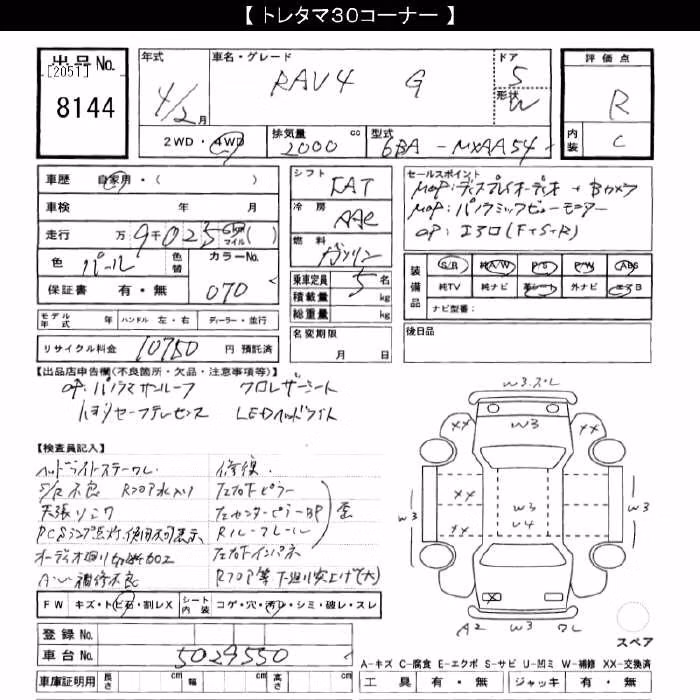 【 トレタマ30コーナー 】
出品No.
[2051]
8144
年式
4/2月
車名・グレード
RAV4 G
ドア
5
形状
W
評価点
R
内装
C
2WD・4WD
排気量 2000 cc
型式 6BA-MXAA54
車歴 自家用・( )
車検 年 月
走行 万 9千023 km マイル ( )
色 パール 色替
カラーNo. 070
保証書 有・無
シフト FAT
冷房 AAC
燃料 ガソリン
乗車定員 5 名
積載量 kg
総重量 kg
セールスポイント
MOP:ディスプレイオーディオ+Bカメラ
MOP:パノラミックビューモニター
OP:エアロ(F+S+R)
装備品
S/R 純A/W P/S P/W ABS
純TV 純ナビ 革シート 外ナビ エアB
ナビ型番:
モデル年式 年 ハンドル 左・右 ディーラー・並行
リサイクル料金 10750 円 預託済
名変期限 月 日
後日品
【出品店申告欄(不良箇所・欠品・注意事項等)】
OP:パノラマサンルーフ クロレザーシート
トヨタセーフティセンス LEDヘッドライト
【検査員記入】
ヘッドライトステーワレ
S/R不良 Rフロア水入り
天張りシワ
PCSランプ点灯、使用不可表示
A/W補修不良
修復
左右Fピラー
左センターピラーBP
Rルーフレール
左右Fインパネ
歪
Rフロア等下廻り突上げ(大)
W3.ズレ
W3
XX
XX
W3
XX
XX
W3
W3
U4
A2
W3
ワレ
スペア
FW キズ・トビ石・割レX シート内装 コゲ・穴・汚レ・シミ・破レ・スレ
登録No.
車台No. 5029550
車庫証明用 長さ cm 幅 cm 高さ cm
A-キズ C-腐食 E-エクボ S-サビ U-凹ミ W-補修 XX-交換済
工具 有・無 ジャッキ 有・無